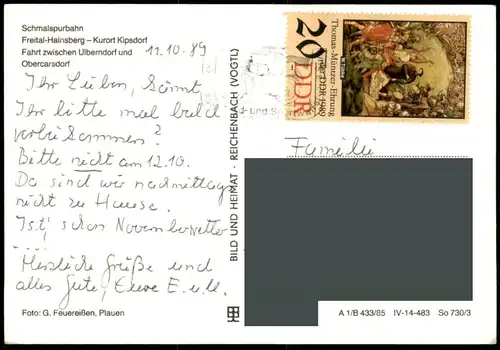 Schmalspurbahn
Freital-Hainsberg – Kurort Kipsdorf
Fahrt zwischen Ulberndorf und
Obercarsdorf
11.10.89
Ihr Lieben, könnt
Ihr bitte mal bald
vorbeikommen?
Bitte nicht am 12.10.
Da sind wir nachmittags
nicht zu Hause.
Ist' schon Novemberwetter
Herzliche Grüße und
alles Gute, Eure E. u.
Foto: G. Feuereißen, Plauen
BILD UND HEIMAT · REICHENBACH (VOGTL)
20
DDR
Thomas-Müntzer-Ehrung
der DDR 1989
Familie
A 1/B 433/85 IV-14-483 So 730/3